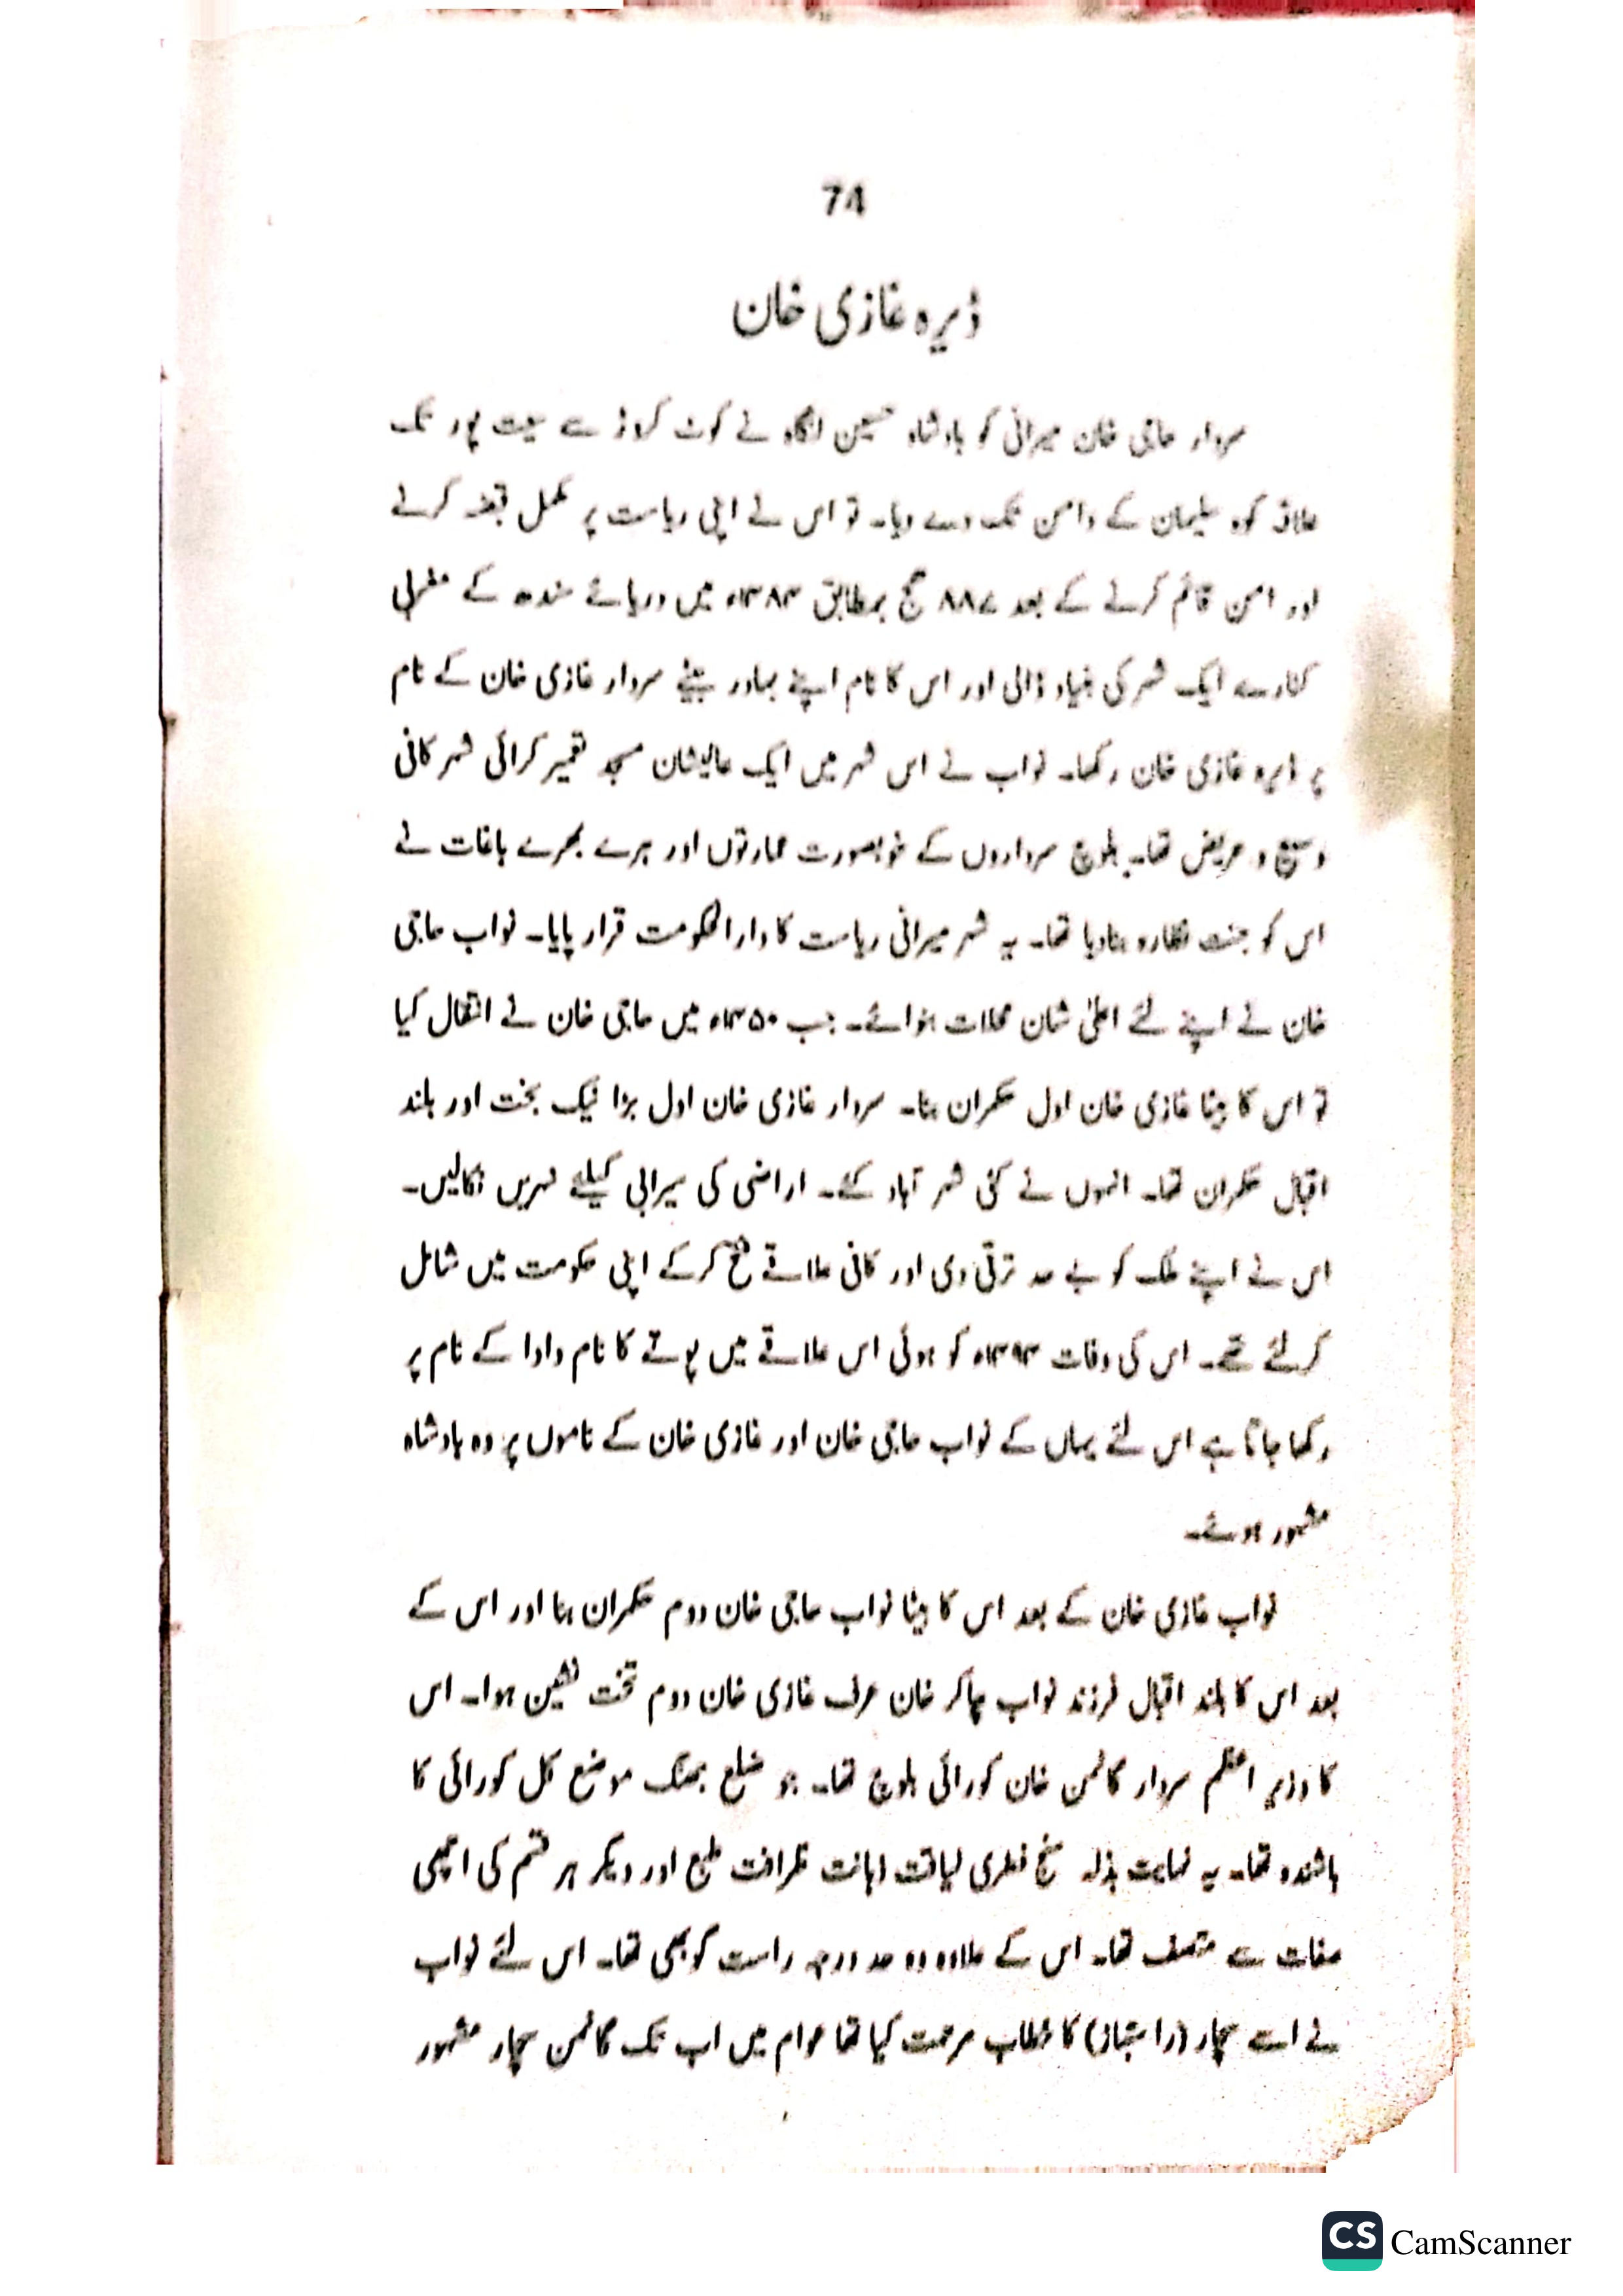 74
ڈیرہ غازی خان
سردار حاجی خان میرانی کو بادشاہ حسین لنگاہ نے کوٹ کروڑ سے سیت پور تک
علاقہ کوہ سلیمان کے دامن تک دے دیا۔ تو اس نے اپنی ریاست پر مکمل قبضہ کرنے
اور امن قائم کرنے کے بعد ۸۸۷ ھج بمطابق ۱۴۸۳ء میں دریائے سندھ کے مغربی
کنارے ایک شہر کی بنیاد ڈالی اور اس کا نام اپنے بہادر بیٹے سردار غازی خان کے نام
پر ڈیرہ غازی خان رکھا۔ نواب نے اس شہر میں ایک عالیشان مسجد تعمیر کرائی شہر کافی
وسیع و عریض تھا۔ بلوچ سرداروں کے خوبصورت عمارتوں اور ہرے بھرے باغات نے
اس کو جنت نظارہ بنادیا تھا۔ یہ شہر میرانی ریاست کا دارالحکومت قرار پایا۔ نواب حاجی
خان نے اپنے لئے اعلیٰ شان محلات بنوائے۔ جب میں حاجی خان نے انتقال کیا
تو اس کا بیٹا غازی خان اول حکمران بنا۔ سردار غازی خان اول بڑا نیک بخت اور بلند
اقبال حکمران تھا۔ انہوں نے کئی شہر آباد کئے۔ اراضی کی سیرابی کیلئے نہریں نکالیں۔
اس نے اپنے ملک کو بے حد ترقی دی اور کافی علاقے فتح کرکے اپنی حکومت میں شامل
کرلئے تھے۔ اس کی وفات ۱۴۹۴ء کو ہوئی اس علاقے میں پوتے کا نام دادا کے نام پر
رکھا جاتا ہے اس لئے یہاں کے نواب حاجی خان اور غازی خان کے ناموں پر وہ بادشاہ
مشہور ہوئے۔
نواب غازی خان کے بعد اس کا بیٹا نواب حاجی خان دوم حکمران بنا اور اس کے
بعد اس کا بلند اقبال فرزند نواب چاکر خان عرف غازی خان دوم تخت نشین ہوا۔ اس
کا وزیر اعظم سردار گانمن خان کورائی بلوچ تھا۔ جو ضلع جھنگ موضع کورائی کا
باشندہ تھا۔ یہ نہایت بذلہ سنج فطری لیاقت ظرافت طبع اور دیگر ہر قسم کی اچھی
صفات سے متصف تھا۔ اس کے علاوہ وہ حد درجہ راست گو بھی تھا۔ اس لئے نواب
نے اسے سچار (راستباز) کا خطاب مرحمت کیا تھا عوام میں اب تک گانمن سچار مشہور
CS CamScanner